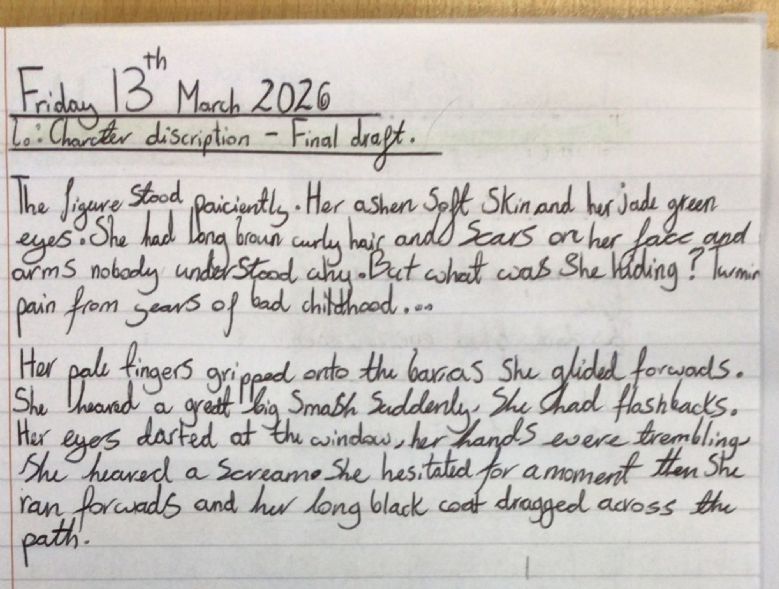 Friday 13th March 2026
Lo: Charcter discription - Final draft.
The figure stood paiciently. Her ashen soft skin and her jade green
eyes. She had long broun curly hair and scars on her face and
arms nobody understood why. But what was she hiding? Turmin
pain from years of bad childhood....
Her pale fingers gripped onto the bar as she glided forwads.
She heared a great big smash suddenly. She had flashbacks.
Her eyes darted at the window, her hands were trembling
She heared a scream. She hesitated for a moment then she
ran forwads and her long black coat dragged across the
path.